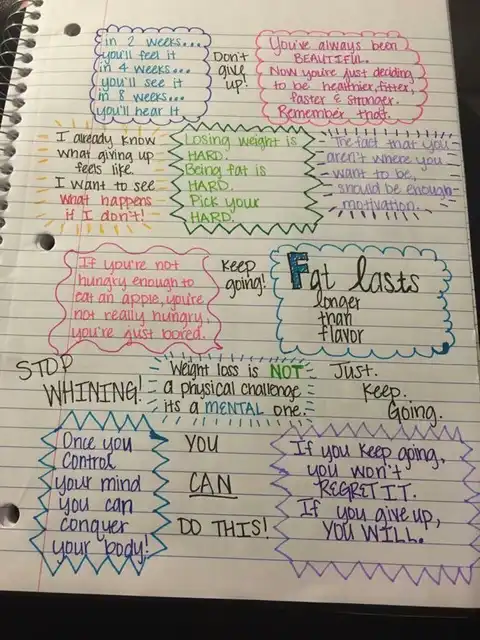 in 2 weeks...
you'll feel it
in 4 weeks...
you'll see it
in 8 weeks...
you'll hear it
Don't
give
up!
You've always been
BEAUTIFUL.
Now you're just deciding
to be healthier, fitter,
faster & stronger.
Remember that.
I already know
what giving up
feels like.
I want to see
what happens
if I don't!
Losing weight is
HARD.
Being fat is
HARD.
Pick your
HARD.
The fact that you
aren't where you
want to be,
should be enough
motivation.
If you're not
hungry enough to
eat an apple, you're
not really hungry,
you're just bored.
Keep
going!
Fat lasts
longer
than
flavor
STOP
WHINING!
Weight loss is NOT
a physical challenge
its a MENTAL one.
Just.
Keep.
Going.
Once you
control
your mind
you can
conquer
your body!
YOU
CAN
DO THIS!
If you keep going,
you won't
REGRET IT.
If you give up,
YOU WILL.